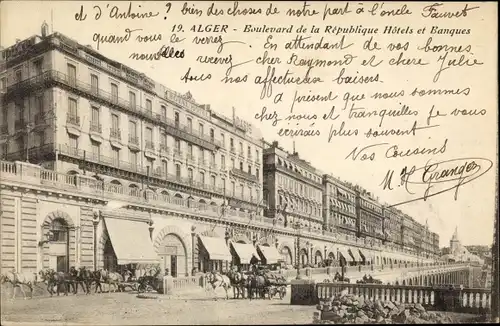 et d'Antoine ? bien des choses de notre part à l'oncle Fauvet
19. ALGER - Boulevard de la République Hôtels et Banques
quand vous le verrez
nous
En attendant de vos bonnes
recevez cher Raymond et chère Julie
tous nos affectueux baisers.
à présent que nous sommes
chez nous et tranquilles je vous
écrirais plus souvent.
Vos Cousins
M. & H. Granger